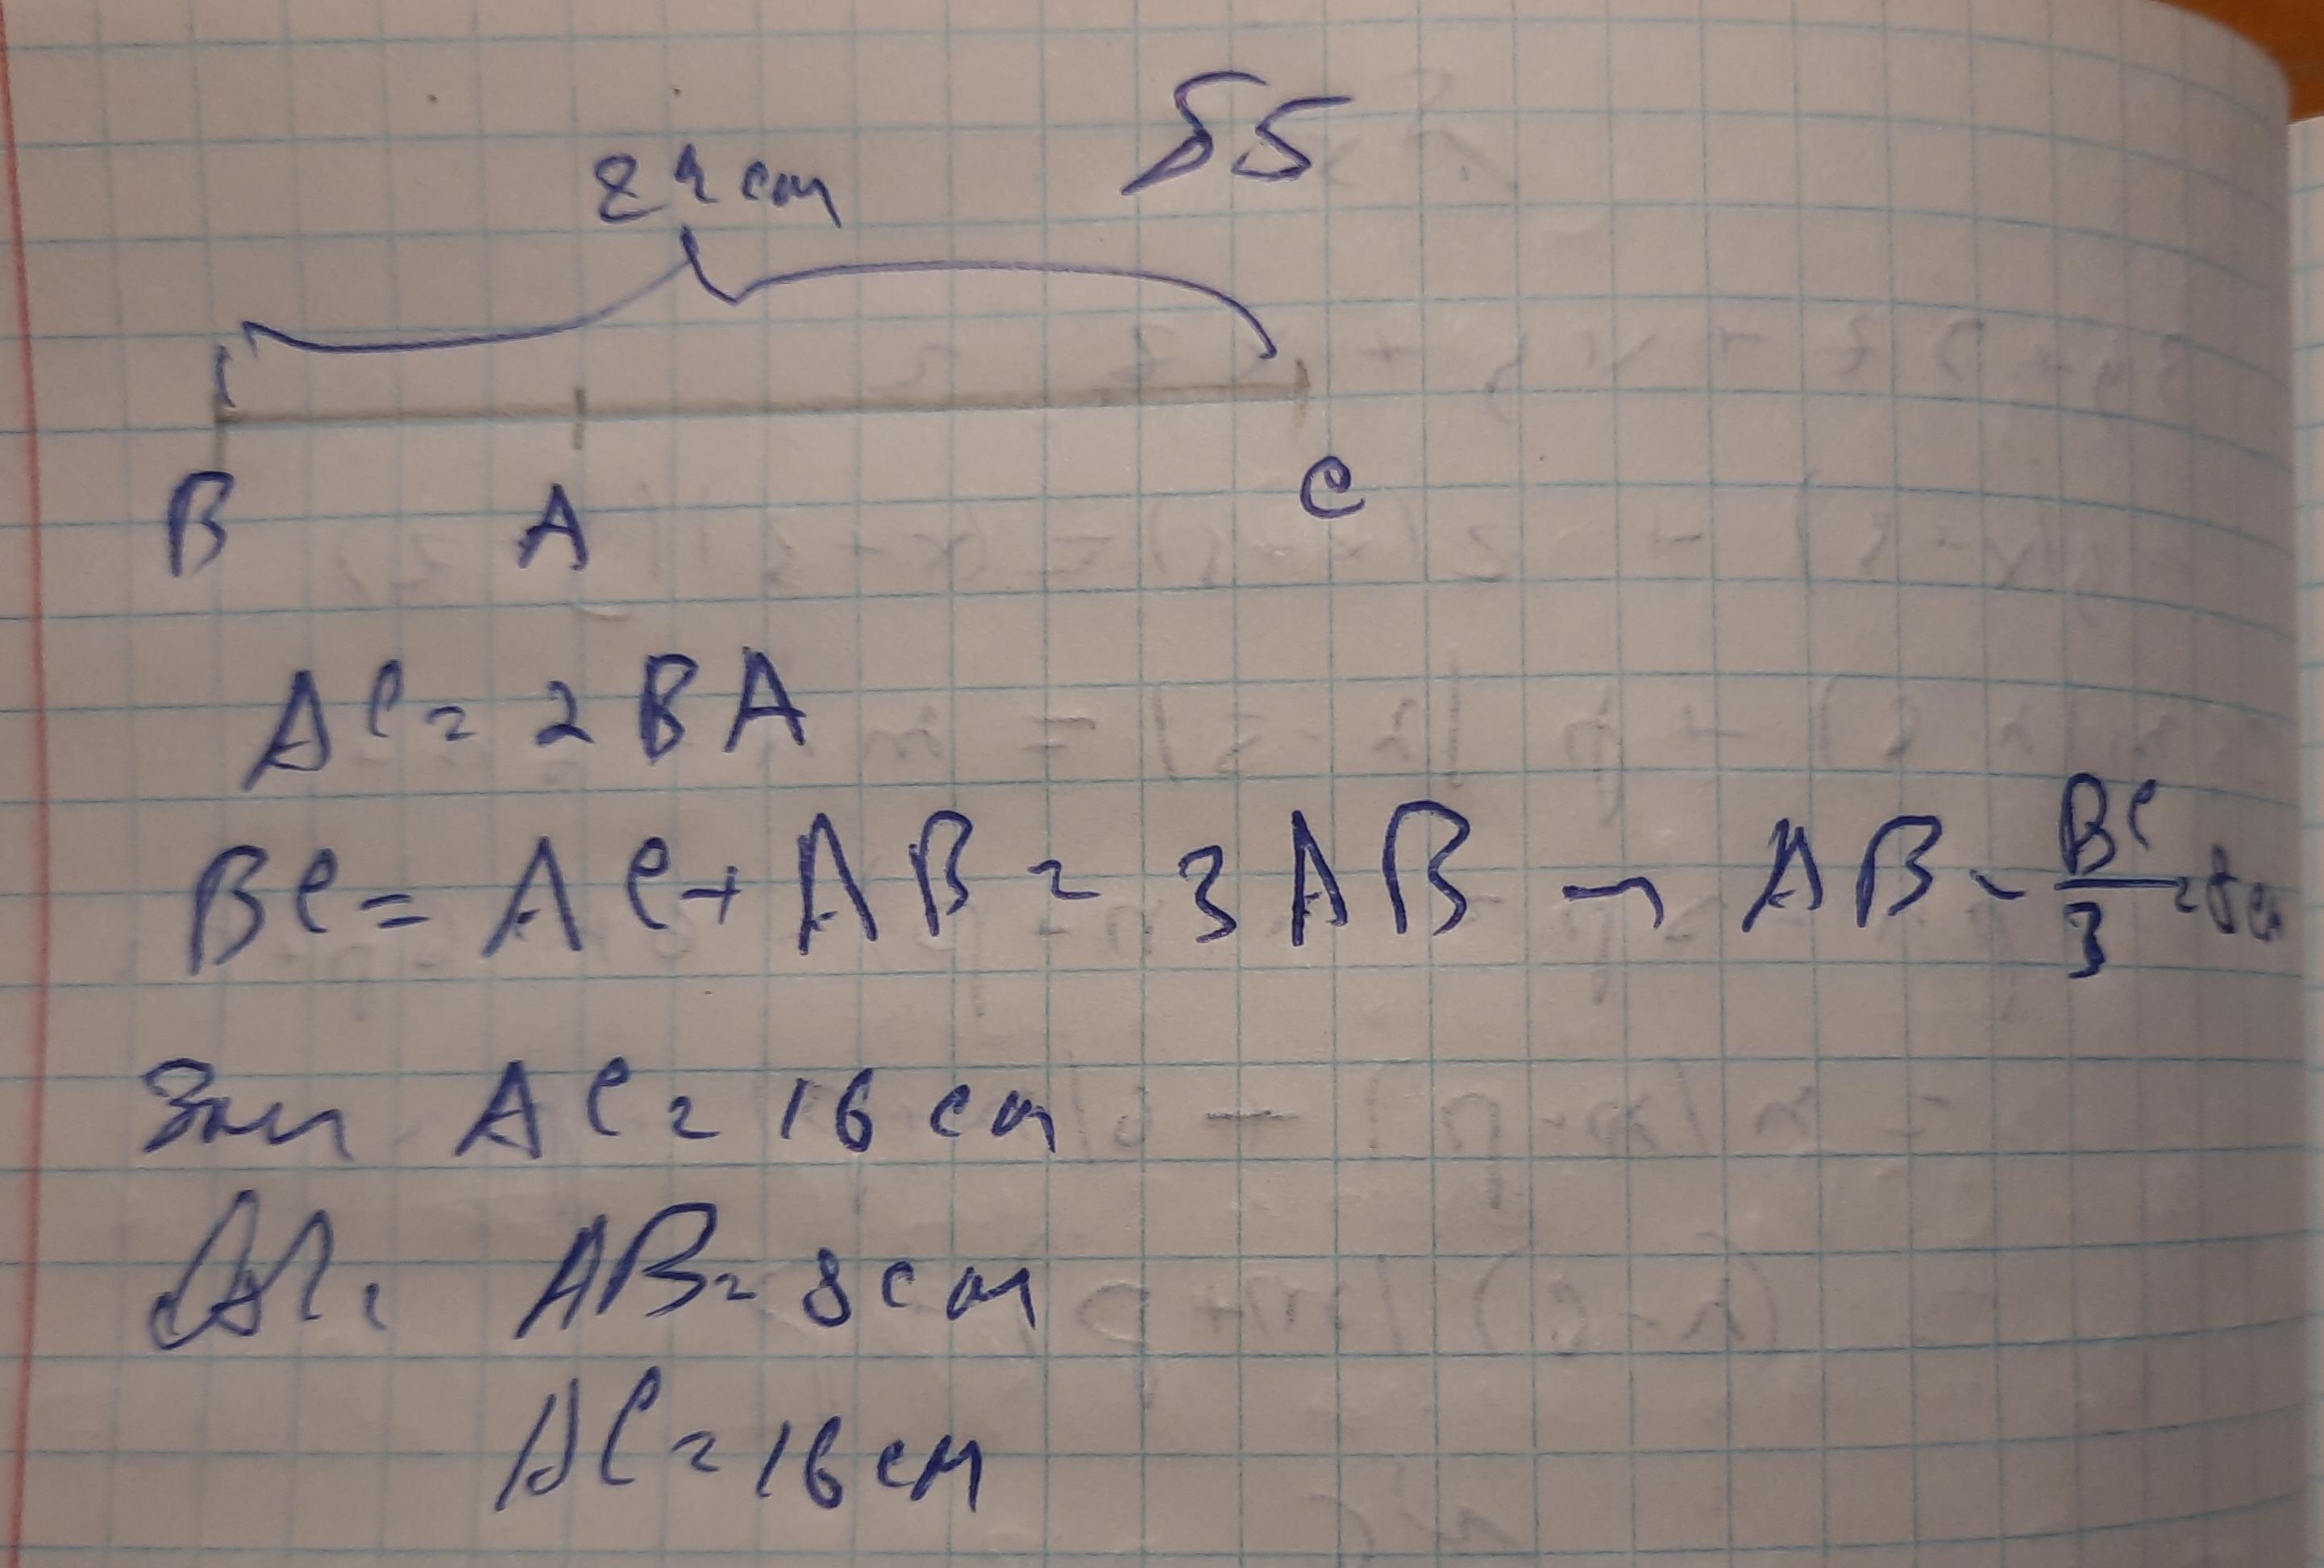 55
24 см
B A C
AC = 2 BA
BC = AC + AB = 3 AB → AB = BC/3 = 8 см
AC = 16 см
AB = 8 см
AC = 16 см